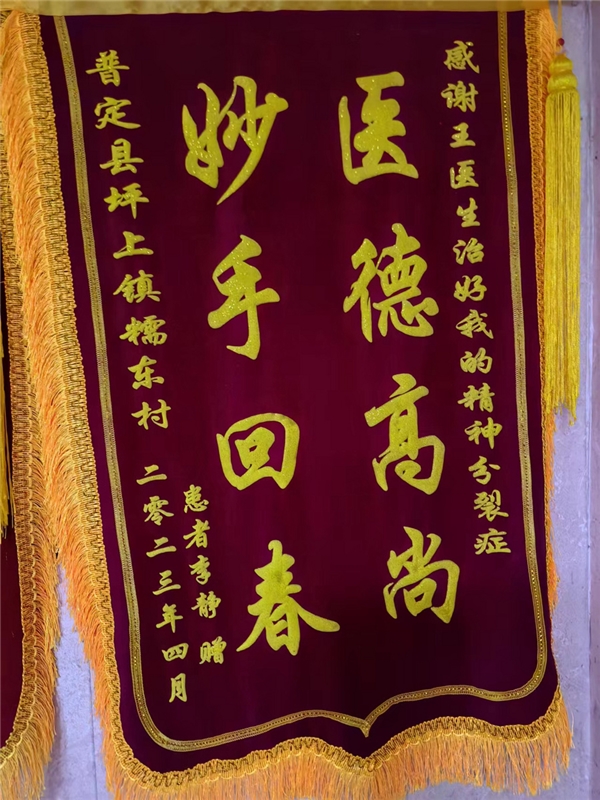 感谢王医生治好我的精神分裂症
医德高尚
妙手回春
患者李静 赠
普定县坪上镇糯东村 二零二三年四月